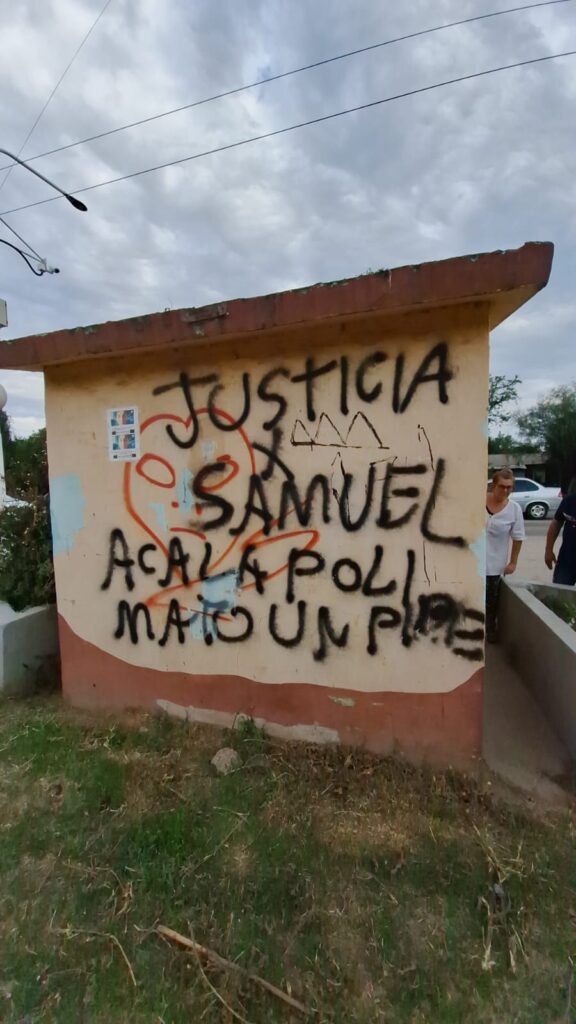 JUSTICIA
X
SAMUEL
ACA LA POLI
MATO UN PIBE